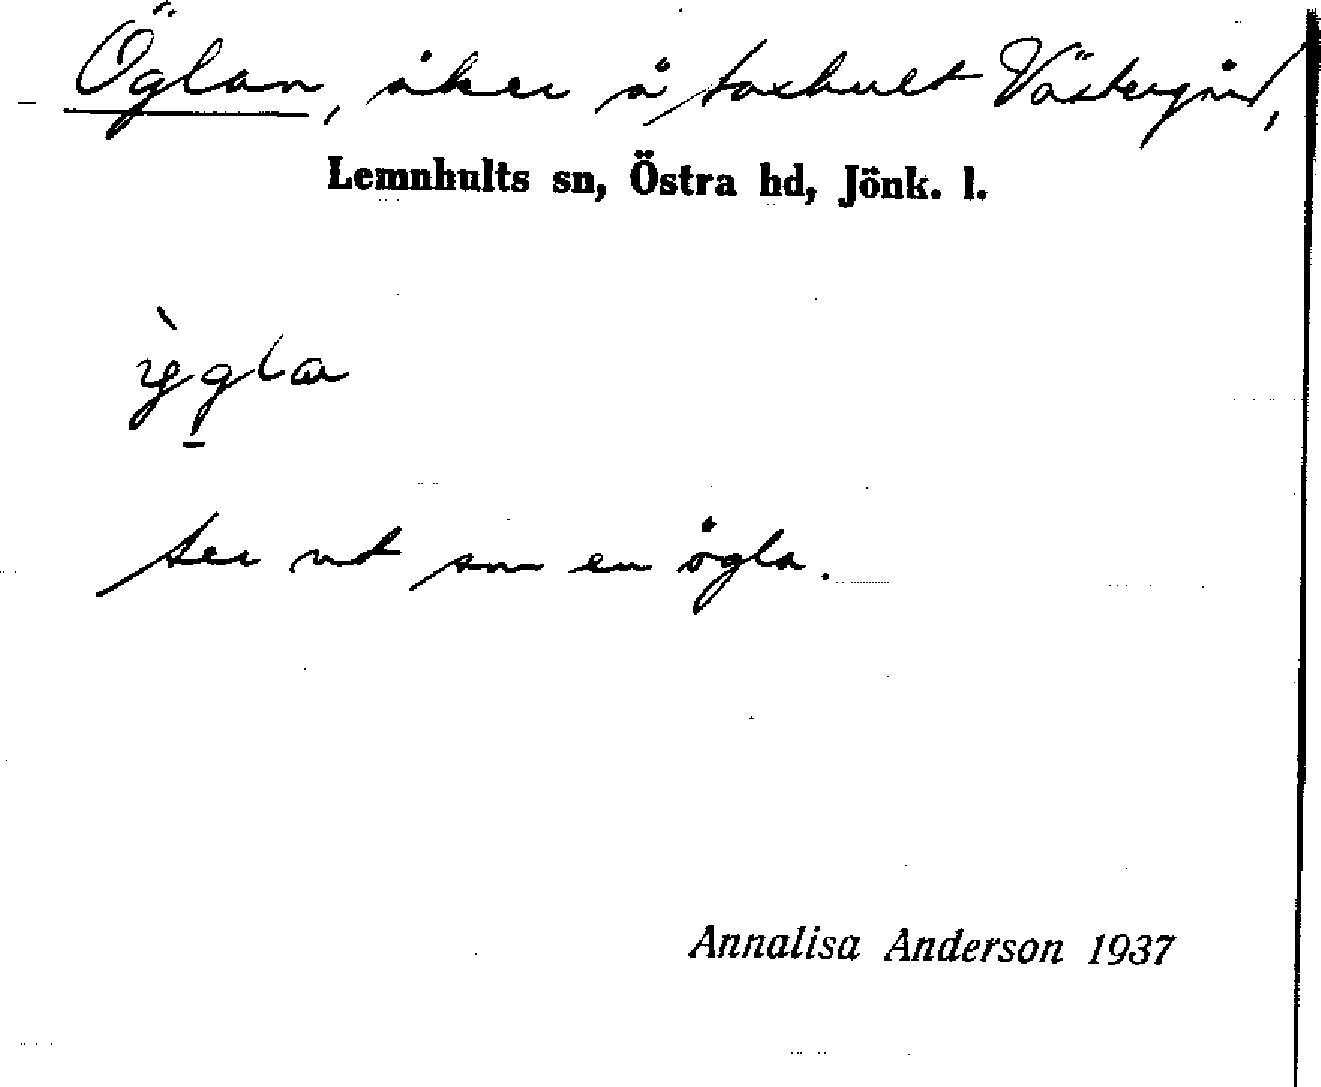 Öglan, åker å Saxhult Västergård,
Lemnhults sn, Östra hd, Jönk. l.
Ser ut som en ögla.
Annalisa Anderson 1937